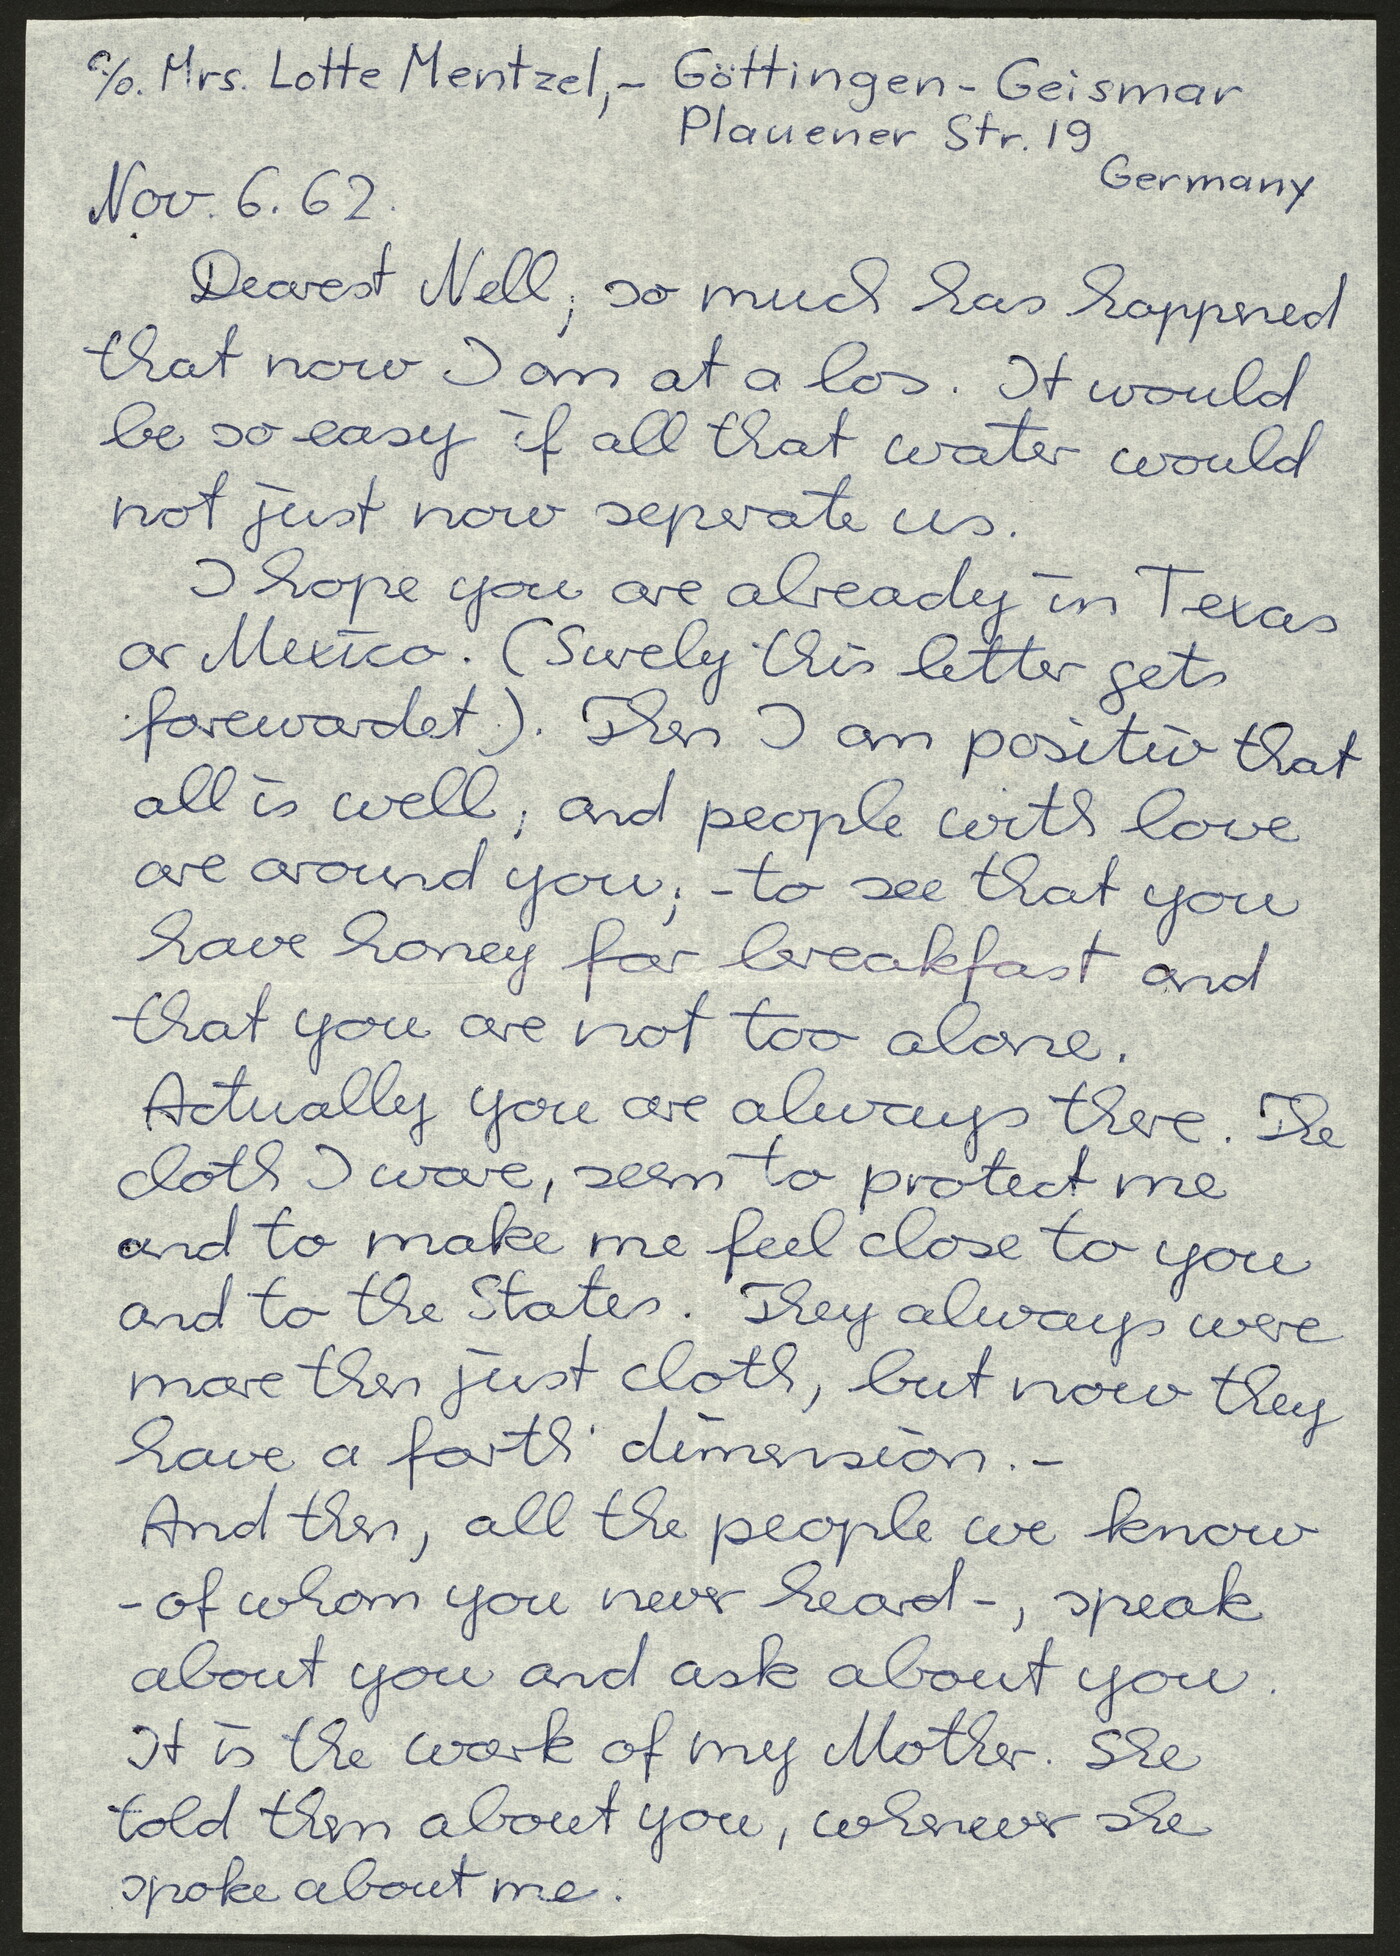 c/o. Mrs. Lotte Mentzel,- Göttingen-Geismar
Plauener Str. 19
Germany
Nov. 6. 62.
Dearest Nell, so much has happened
that now I am at a los. It would
be so easy if all that water would
not just now seperate us.
I hope you are already in Texas
or Mexico. (Surely this letter gets
forewardet). Then I am positiv that
all is well, and people with love
are around you, -to see that you
have honey for breakfast and
that you are not too alone.
Actually you are always there. The
cloth I wore, seem to protect me
and to make me feel close to you
and to the States. They always were
more then just cloth, but now they
have a forth dimension.-
And then, all the people we know
-of whom you never heard-, speak
about you and ask about you.
It is the work of my Mother. She
told them about you, whenever she
spoke about me.